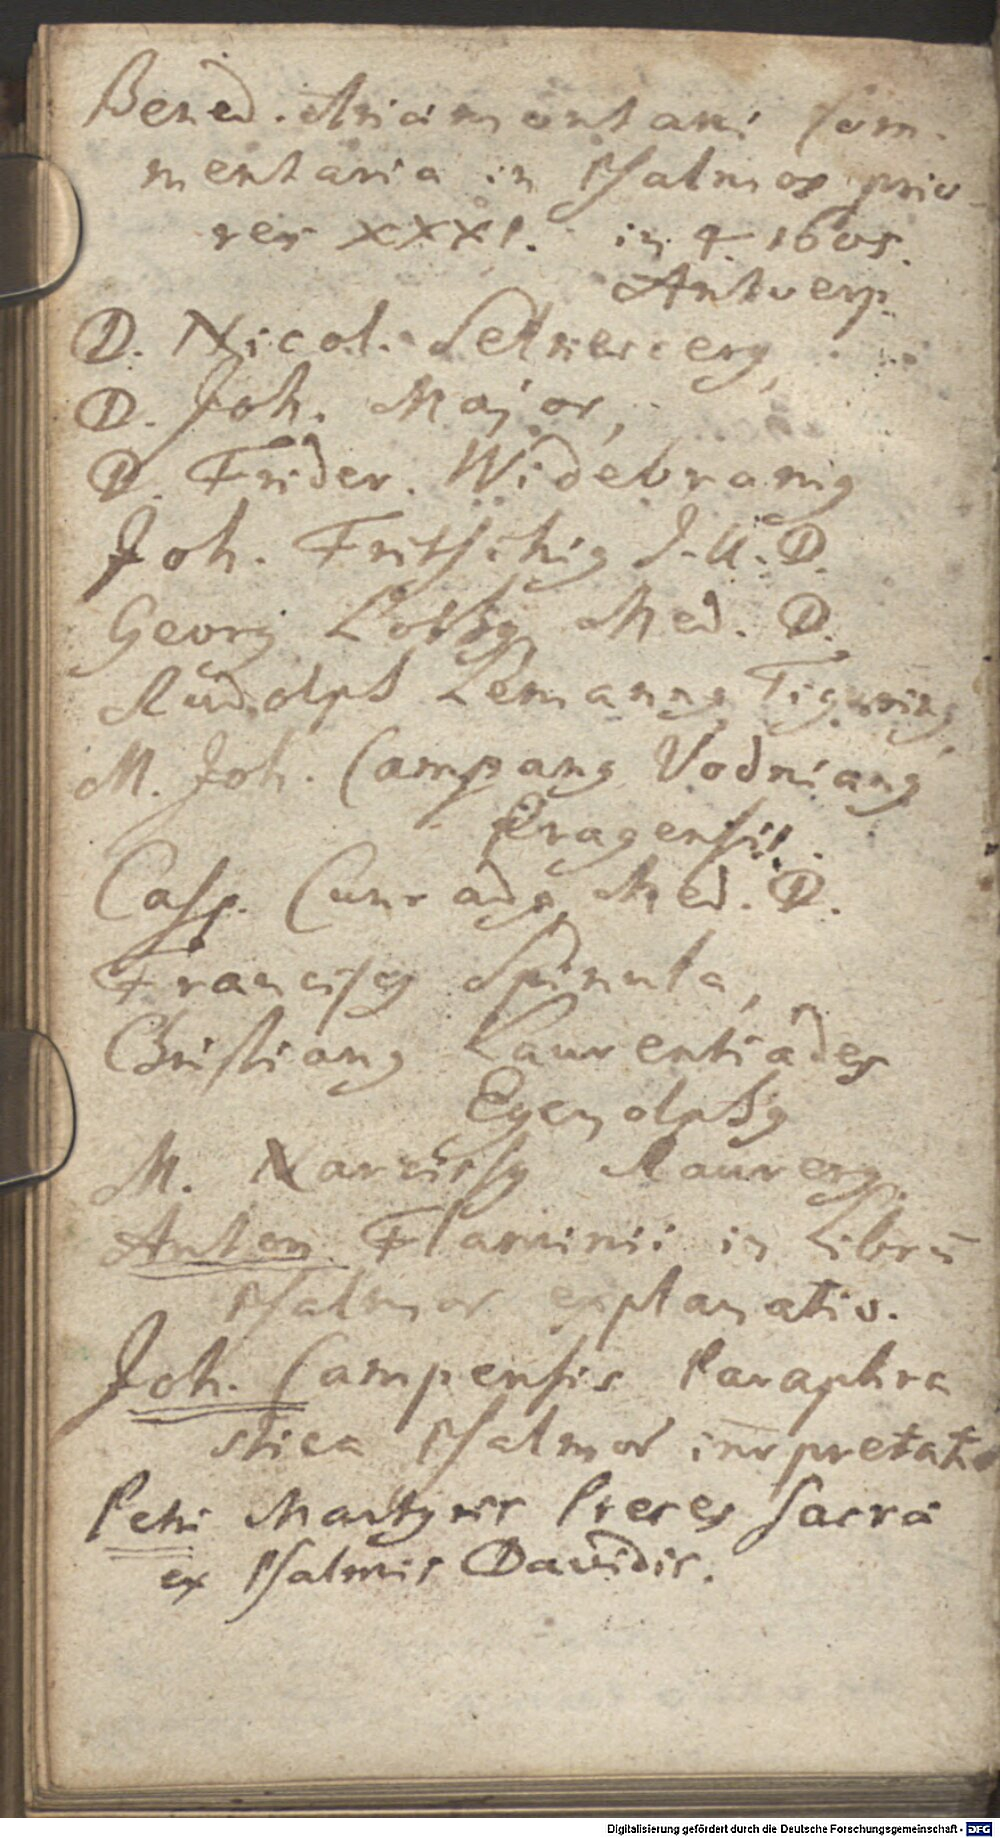 Bened. Ariæ montani Com-
mentaria in Psalmos prio-
res XXXI. in 4 1605.
Antverp.
D. Nicol. Selneccerg,
D. Joh. Major,
D. Frider. Widebramg
Joh. Fritschig J. U. D.
Georg Med. D.
Rudolph Lemanng Tiguring,
M. Joh. Campang Vodniang
Pragensis.
Casp. Cunradg Med. D.
Franciscg Spinula,
Christiang Laurentiades
Egenolphg
M. Narcissg Raurerg.
Anton Flaminii in librū
Psalmor explanatio.
Joh. Campensis Paraphra
stica Psalmor inrpretat
Petri Martyris Preces Sacrä
ex Psalmis Davidis.
Digitalisierung gefördert durch die Deutsche Forschungsgemeinschaft - DFG